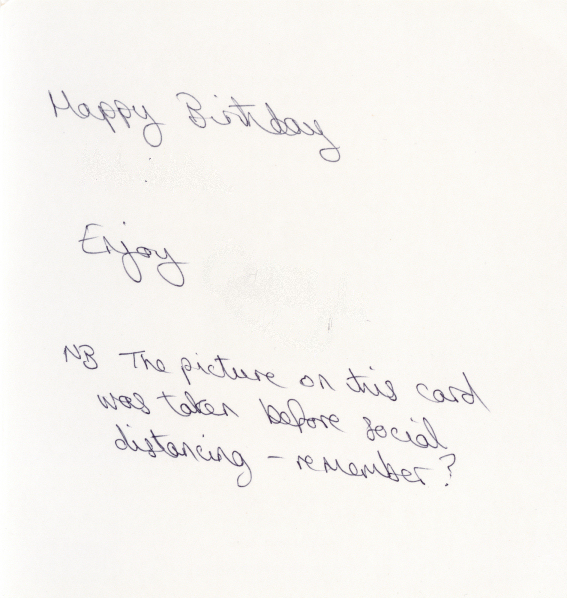 Happy Birthday
Enjoy
NB The picture on this card
was taken before social
distancing - remember?